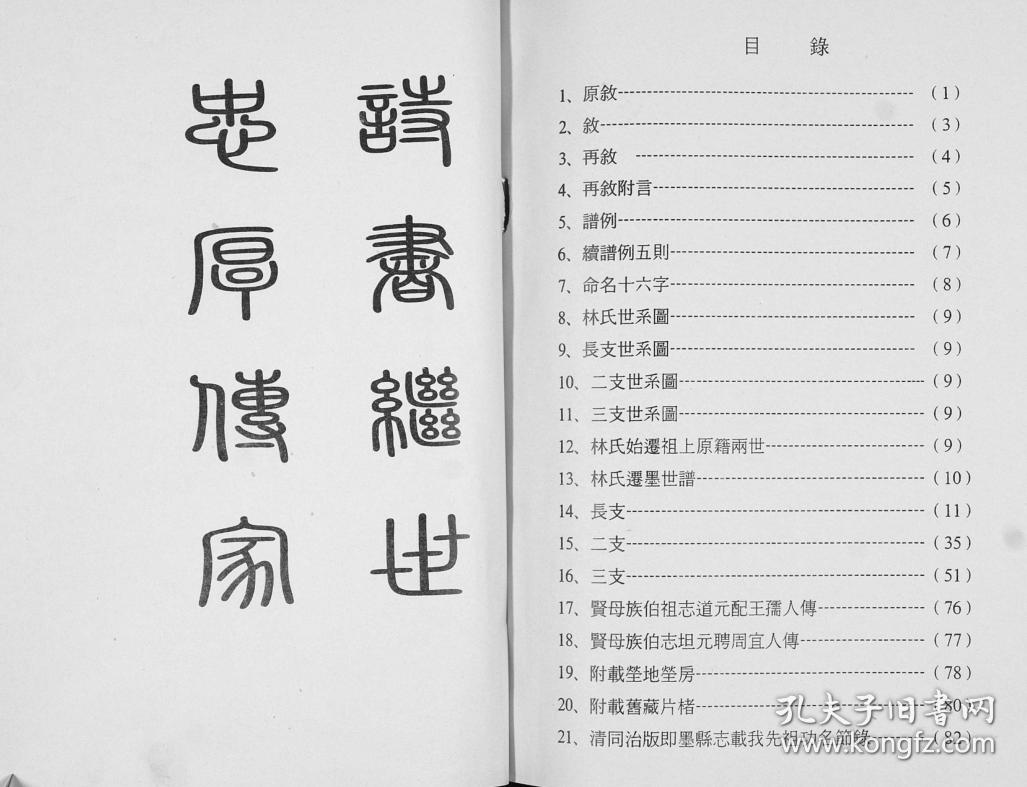 詩書繼世
忠厚傳家
目 錄
1、原敘------------------------------（1）
2、敘------------------------------（3）
3、再敘 ------------------------------（4）
4、再敘附言------------------------------（5）
5、譜例------------------------------（6）
6、續譜例五則------------------------------（7）
7、命名十六字------------------------------（8）
8、林氏世系圖------------------------------（9）
9、長支世系圖------------------------------（9）
10、二支世系圖------------------------------（9）
11、三支世系圖------------------------------（9）
12、林氏始遷祖上原籍兩世------------------------------（9）
13、林氏遷墨世譜------------------------------（10）
14、長支------------------------------（11）
15、二支------------------------------（35）
16、三支------------------------------（51）
17、賢母族伯祖志道元配王孺人傳------------------------------（76）
18、賢母族伯志坦元聘周宜人傳------------------------------（77）
19、附載塋地塋房------------------------------（78）
20、附載舊藏片楮------------------------------（80）
21、清同治版即墨縣志載我先祖功名節錄------------------------------（82）
孔夫子旧书网
www.kongfz.com